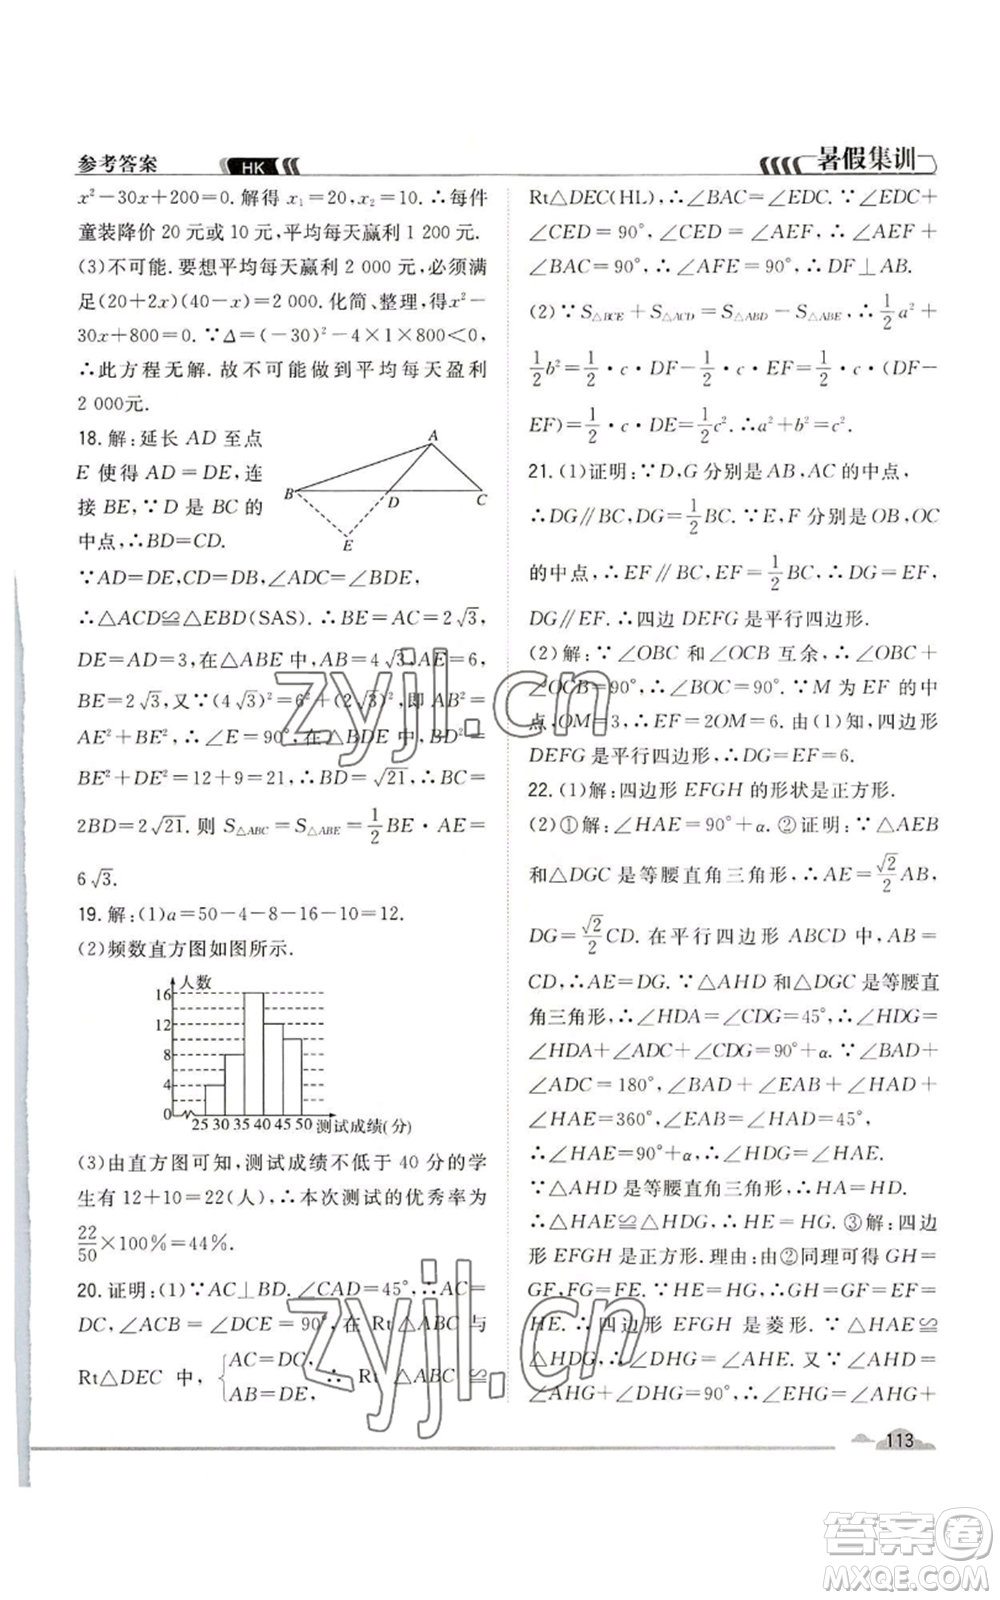 参考答案
HK
暑假集训
x²－30x＋200＝0. 解得 x₁＝20，x₂＝10. ∴每件
童装降价 20 元或 10 元，平均每天赢利 1 200 元.
(3)不可能. 要想平均每天赢利 2 000 元，必须满
足(20＋2x)(40－x)＝2 000. 化简、整理，得x²－
30x＋800＝0. ∵Δ＝(－30)²－4×1×800＜0，
∴此方程无解. 故不可能做到平均每天盈利
2 000元.
18. 解：延长 AD 至点
E 使得 AD＝DE，连
接 BE，∵D 是 BC 的
中点，∴BD＝CD.
A
B
D
C
E
∵AD＝DE，CD＝DB，∠ADC＝∠BDE，
∴△ACD≌△EBD(SAS). ∴BE＝AC＝2√3，
DE＝AD＝3，在△ABE 中，AB＝4√3，AE＝6，
BE＝2√3，又∵(4√3)²＝6²＋(2√3)²，即 AB²＝
AE²＋BE²，∴∠E＝90°，在△BDE 中，BD²＝
BE²＋DE²＝12＋9＝21，∴BD＝√21，∴BC＝
2BD＝2√21. 则 S△ABC＝S△ABE＝1/2 BE·AE＝
6√3.
19. 解：(1)a＝50－4－8－16－10＝12.
(2)频数直方图如图所示.
人数
16
12
8
4
0
25 30 35 40 45 50 测试成绩(分)
(3)由直方图可知，测试成绩不低于 40 分的学
生有 12＋10＝22(人)，∴本次测试的优秀率为
22/50×100%＝44%.
20. 证明：(1)∵AC⊥BD. ∠CAD＝45°，∴AC＝
DC，∠ACB＝∠DCE＝90°，在 Rt△ABC 与
Rt△DEC 中，{AC＝DC, AB＝DE, ∴ Rt△ABC≌
Rt△DEC(HL)，∴∠BAC＝∠EDC. ∵∠EDC＋
∠CED＝90°，∠CED＝∠AEF，∴∠AEF＋
∠BAC＝90°，∴∠AFE＝90°，∴DF⊥AB.
(2)∵S△BCE＋S△ACD＝S△ABD－S△ABE，∴1/2 a²＋
1/2 b²＝1/2·c·DF－1/2·c·EF＝1/2·c·(DF－
EF)＝1/2·c·DE＝1/2 c². ∴a²＋b²＝c².
21. (1)证明：∵D，G 分别是 AB，AC 的中点，
∴DG∥BC，DG＝1/2 BC. ∵E，F 分别是 OB，OC
的中点，∴EF∥BC，EF＝1/2 BC，∴DG＝EF，
DG∥EF. ∴四边 DEFG 是平行四边形.
(2)解：∵∠OBC 和∠OCB 互余，∴∠OBC＋
∠OCB＝90°，∴∠BOC＝90°. ∵M 为 EF 的中
点，OM＝3，∴EF＝2OM＝6. 由(1)知，四边形
DEFG 是平行四边形，∴DG＝EF＝6.
22. (1)解：四边形 EFGH 的形状是正方形.
(2)①解：∠HAE＝90°＋α. ②证明：∵△AEB
和△DGC 是等腰直角三角形，∴AE＝√2/2 AB，
DG＝√2/2 CD. 在平行四边形 ABCD 中，AB＝
CD，∴AE＝DG. ∵△AHD 和△DGC 是等腰直
角三角形，∴∠HDA＝∠CDG＝45°，∴∠HDG＝
∠HDA＋∠ADC＋∠CDG＝90°＋α. ∵∠BAD＋
∠ADC＝180°，∠BAD＋∠EAB＋∠HAD＋
∠HAE＝360°，∠EAB＝∠HAD＝45°，
∴∠HAE＝90°＋∠ADC. ∴∠HDG＝∠HAE.
∵△AHD 是等腰直角三角形，∴HA＝HD.
∴△HAE≌△HDG，∴HE＝HG. ③解：四边
形 EFGH 是正方形. 理由：由②同理可得 GH＝
GF，FG＝FE. ∵HE＝HG，∴GH＝GF＝EF＝
HE. ∴四边形 EFGH 是菱形. ∵△HAE≌
△HDG，∴∠DHG＝∠AHE. 又∵∠AHD＝
∠AHG＋∠DHG＝90°，∴∠EHG＝∠AHG＋
113
zyjl.cn
zyjl.cn
答案卷
MXQE.COM